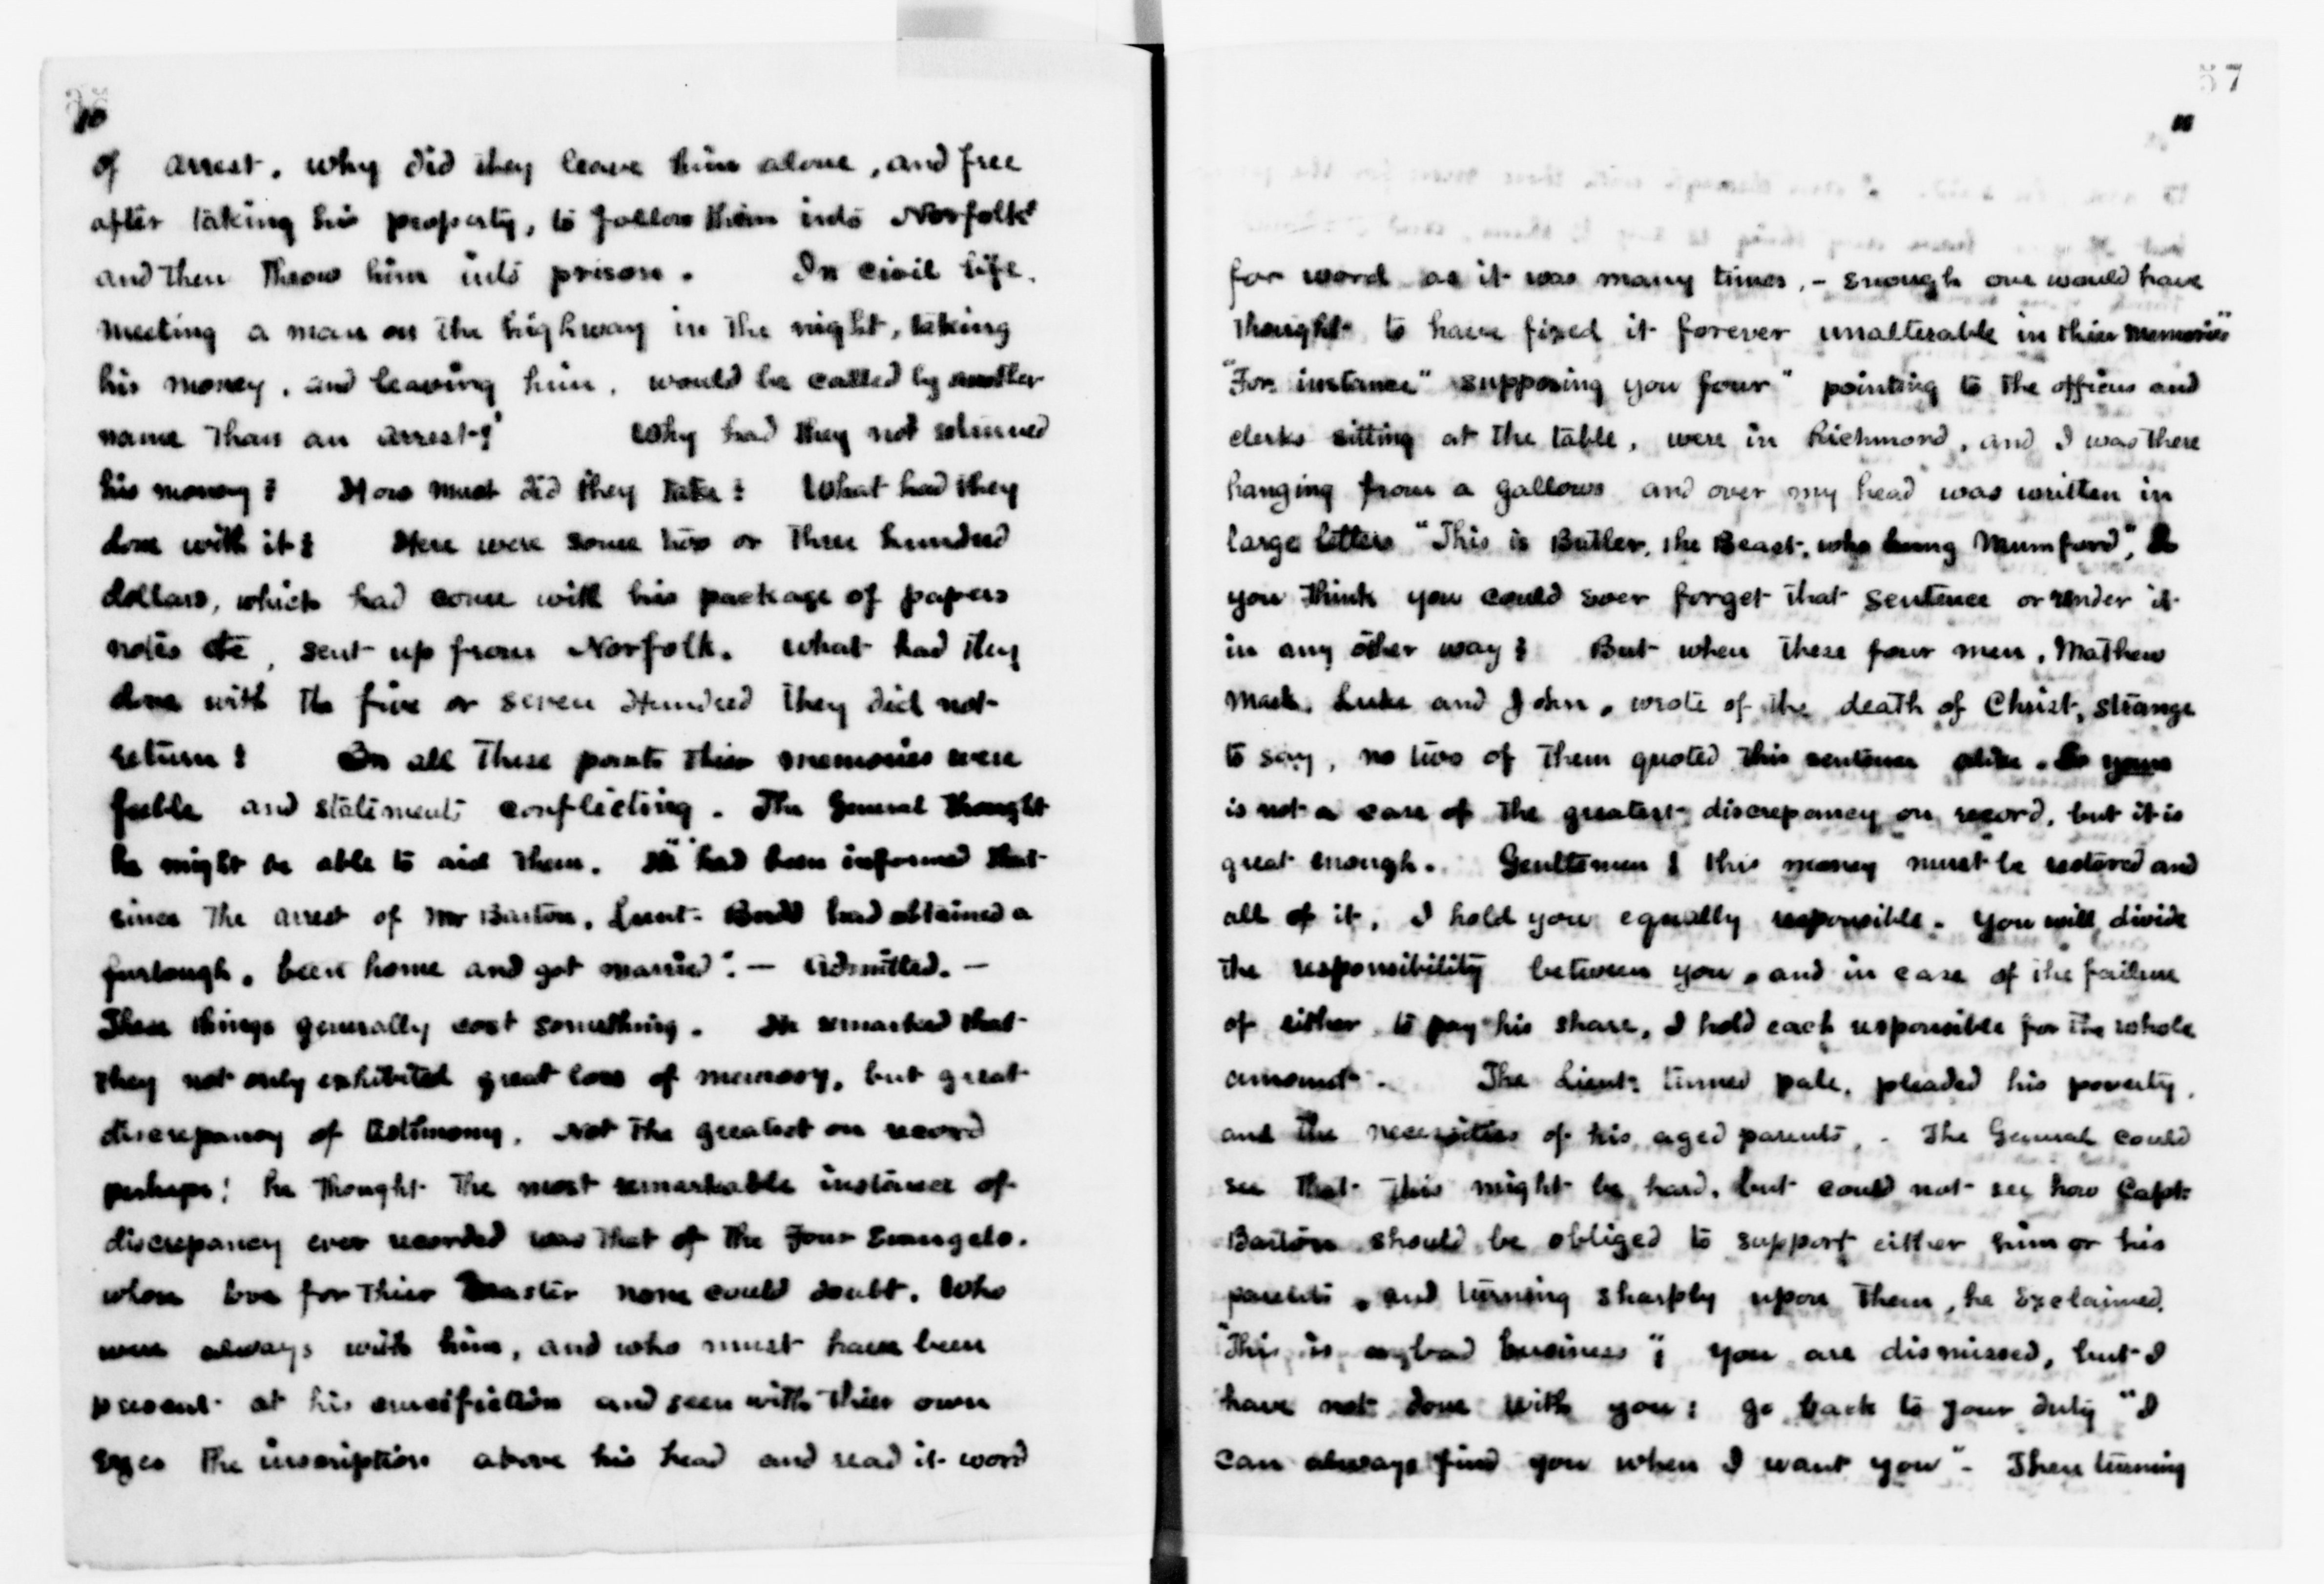 10
of arrest. why did they leave him alone, and free
after taking his property, to follow them into Norfolk
and then throw him into prison. In civil life.
meeting a man on the highway in the night, taking
his money, and leaving him, would be called by another
name than an arrest?" Why had they not returned
his money? How must did they take? What had they
done with it? Here were some two or three hundred
dollars, which had come with his package of papers
notes etc, sent up from Norfolk. What had they
done with the five or seven Hundred they did not
return? On all these points thier memories were
feeble and statements conflicting. The General thought
he might be able to aid them. He "had been informed that
since the arrest of Mr Barton, Lieut. Budd had obtained a
furlough, been home and got married". — Admitted. —
These things generally cost something. He remarked that
they not only exhibited great loss of memory, but great
discrepancy of testimony. Not the greatest on record
perhaps! he thought the most remarkable instance of
discrepancy ever recorded was that of the Four Evangels.
whose love for thier Master none could doubt. Who
were always with him, and who must have been
present at his crucifiction and seen with thier own
Eyes the inscription above his head and read it word
57
11
for word as it was many times, - enough one would have
thought to have fixed it forever unalterable in thier memories"
"For instance" supposing you four" pointing to the officers and
clerks sitting at the table, were in Richmond, and I was there
hanging from a gallows and over my head was written in
large letters "This is Butler, the Beast, who hung Mumford", Do
you think you could ever forget that sentence or render it
in any other way? But when these four men, Mathew
Mark, Luke and John, wrote of the death of Christ, strange
to say, no two of them quoted this sentence alike. So yours
is not a case of the greatest discrepancy on record, but it is
great enough. Gentlemen! this money must be restored and
all of it, I hold you equally responsible. You will divide
the responsibility between you, and in case of the failure
of either to pay his share, I hold each responsible for the whole
amount. The Lieut. turned pale, pleaded his poverty,
and the necessities of his aged parents, - The General could
see that this might be hard, but could not see how Capt.
Barton should be obliged to support either him or his
parents, and turning sharply upon them, he Exclaimed,
"This is bad business"; you are dismissed, but I
have not done with you: go back to your duty "I
can always find you when I want you". Then turning